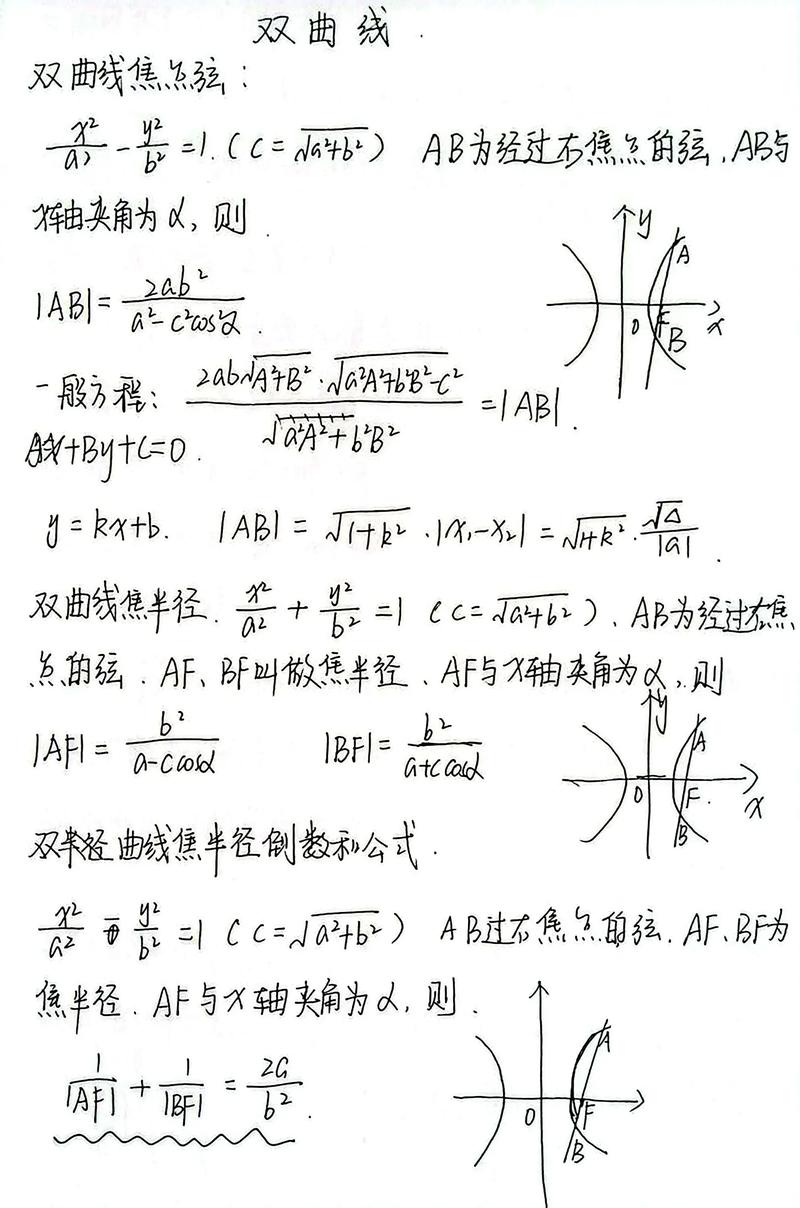 双曲线.
双曲线焦点弦:
x²/a² - y²/b² = 1. (c = √(a²+b²)) AB为经过右焦点的弦, AB与
x轴夹角为α, 则
|AB| = 2ab²/(a²-c²cos²α).
y A O F B x
一般方程: 2ab√(A²+B²)·√(a²A²+b²B²-C²)/√(a²A²+b²B²) = |AB|.
Ax+By+C=0.
y=kx+b. |AB| = √(1+k²)·|x₁-x₂| = √(1+k²)·√Δ/|a|.
双曲线焦半径. x²/a² + y²/b² = 1 (c = √(a²+b²)). AB为经过右焦
点的弦. AF、BF叫做焦半径、AF与x轴夹角为α, 则
|AF| = b²/(a-ccosα) |BF| = b²/(a+ccosα)
y A O F. B x
双半径曲线焦半径倒数和公式.
x²/a² - y²/b² = 1 (c = √(a²+b²)) AB过右焦点的弦. AF、BF为
焦半径. AF与x轴夹角为α, 则.
1/|AF| + 1/|BF| = 2a/b².
A O F B